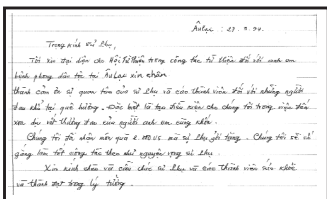 Âu Lạc : 27. 3. 94.
Trọng kính sư Phụ,
Tôi xin đại diện cho Hội Từ Thiện trong công tác từ thiện đối với anh em
bệnh phong dân tộc tại Âu Lạc xin chân
thành cảm ơn sự quan tâm của sư Phụ và các thành viên đối với những người
đau khổ tại quê hương. Đặc biệt là tạo điều kiện cho chúng tôi trong việc
xoa dịu vết thương đau của người anh em cùng khốn.
Chúng tôi đã nhận món quà US mà sư Phụ gởi tặng. Chúng tôi sẽ cố
gắng làm tốt công tác theo như nguyện vọng sư Phụ.
Xin kính chào và cầu chúc sư Phụ và các thành viên sức khỏe
và thành đạt trong lý tưởng.